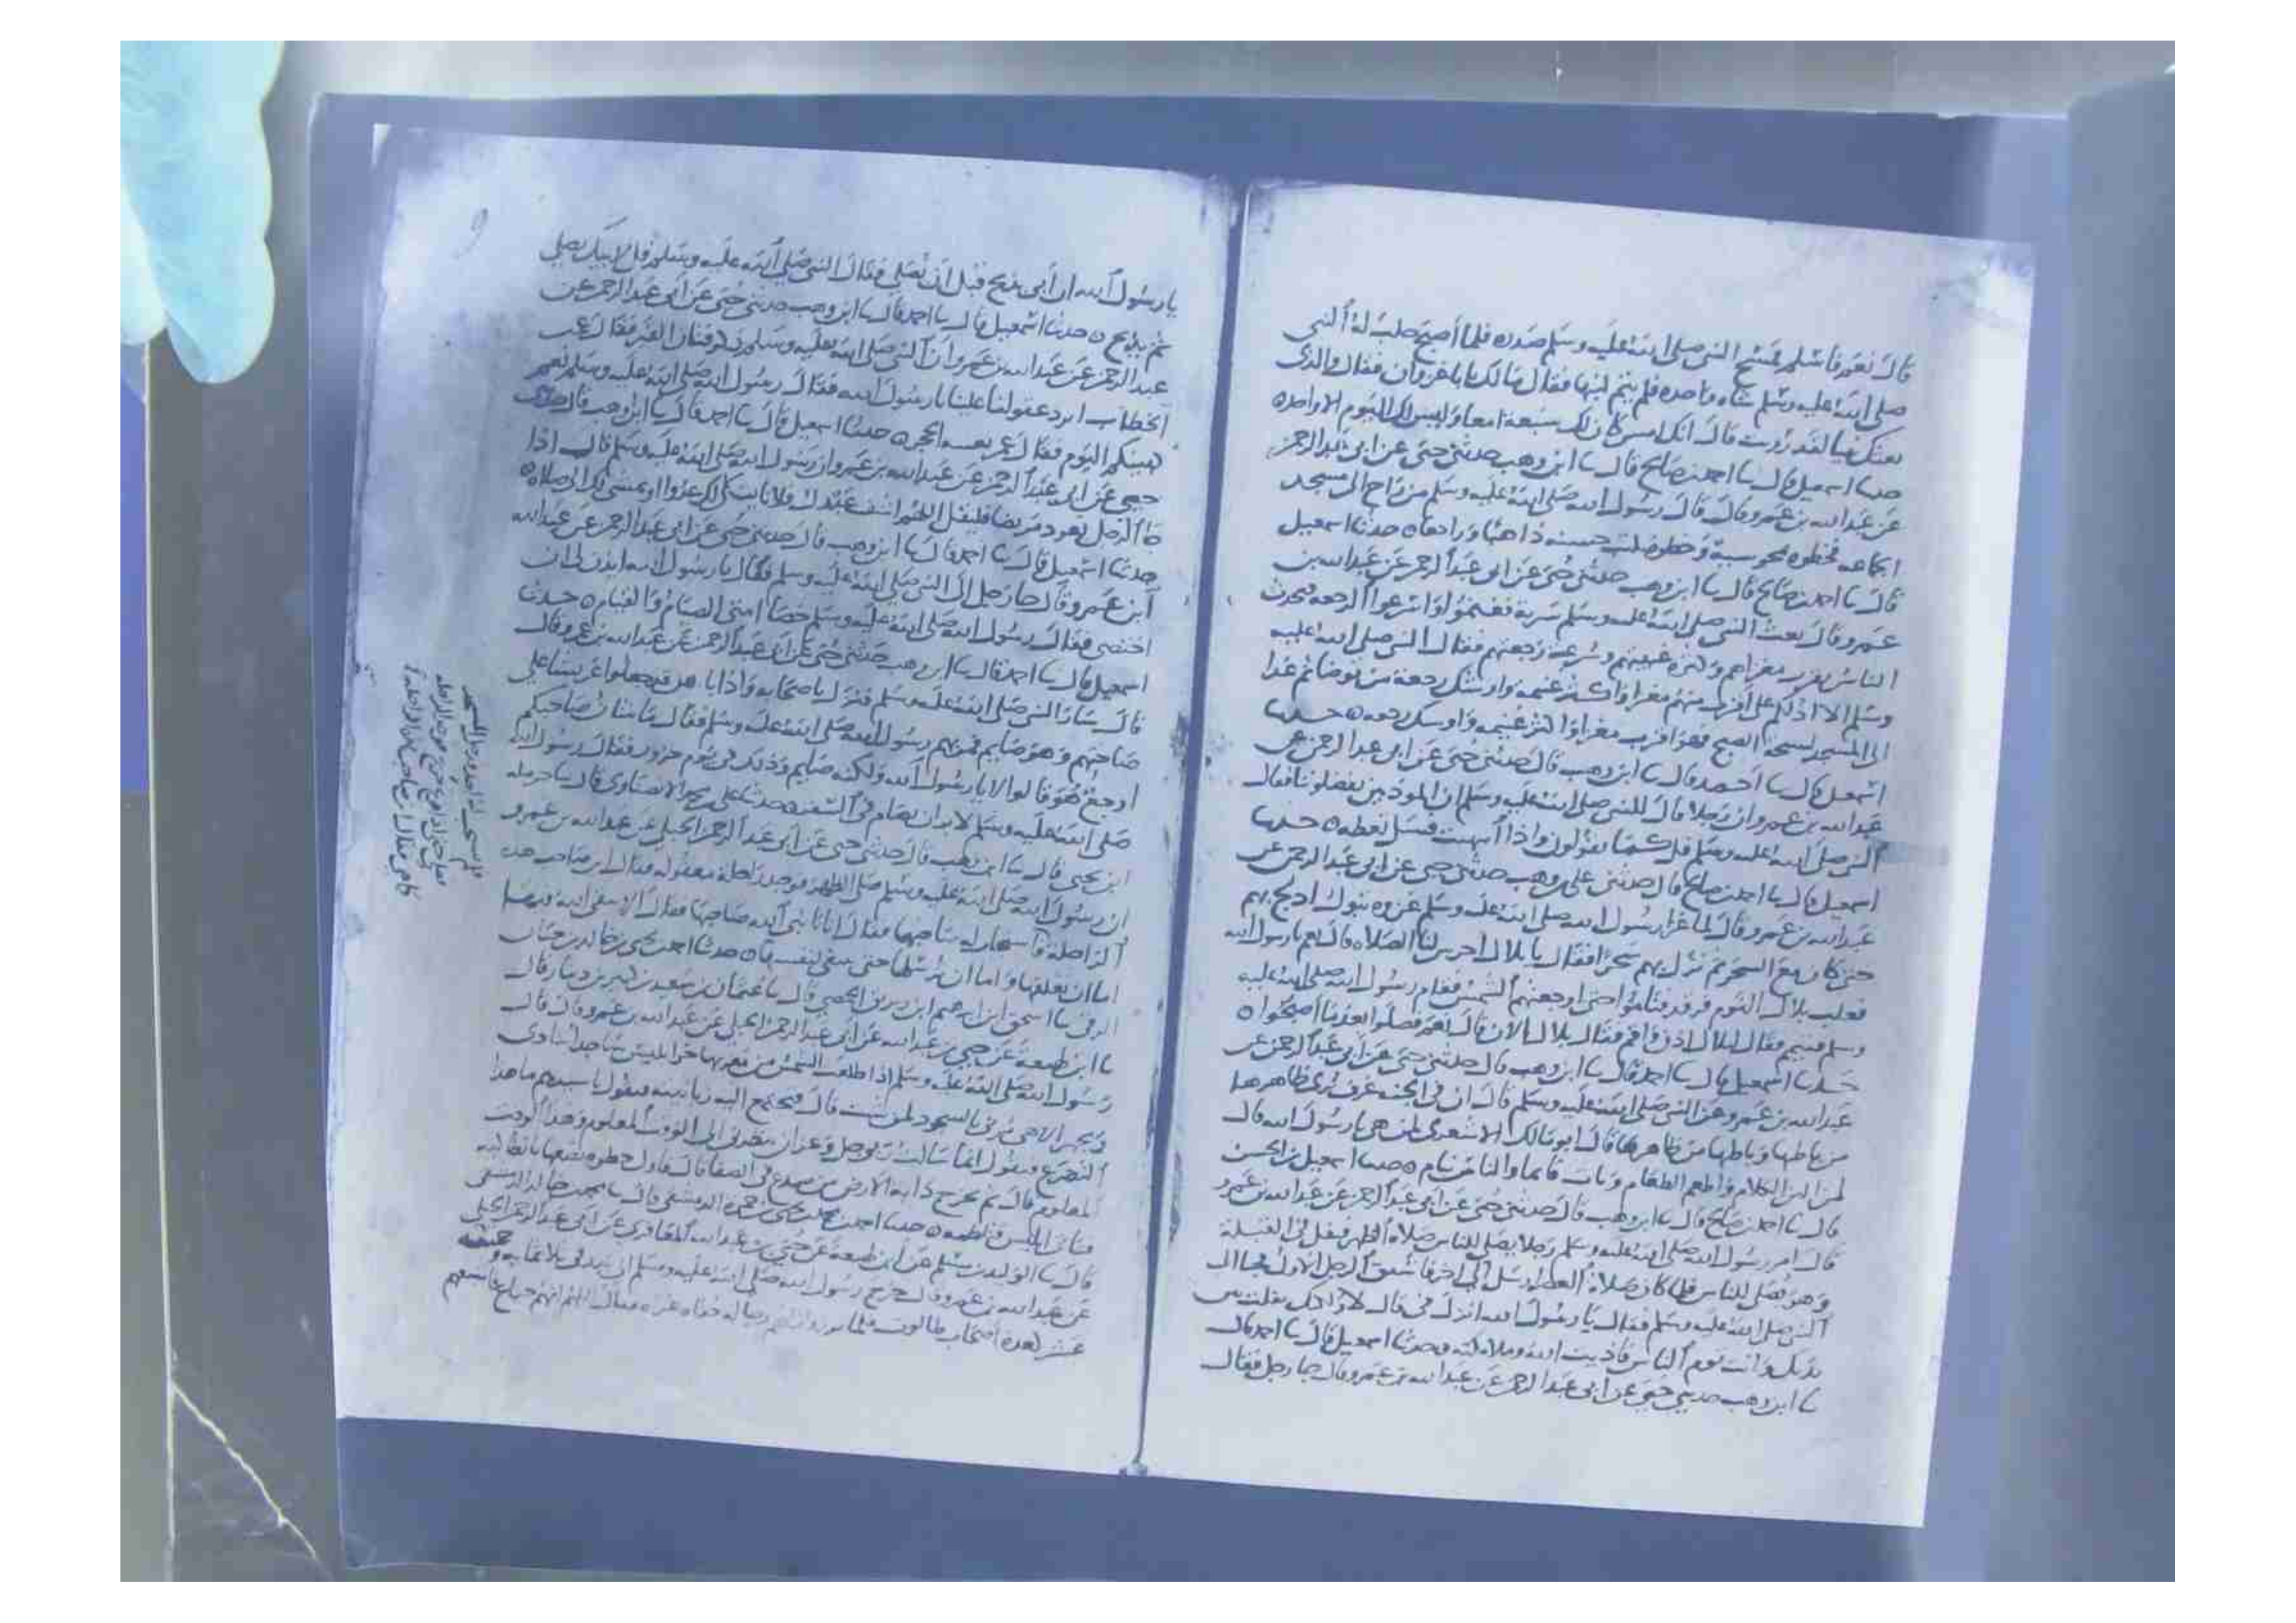 قال نعم فاسلم فمسح النبي صلى الله عليه وسلم صدره فلما أصبح حلب له النبي
صلى الله عليه وسلم شاه واحده فلم يتم لبنها فقال مالك يابا غزوان فقال والذي
بعثك نبيا لقد رويت قال انك امس كان لك سبعة امعا وليس لك اليوم الا واحده
حدثنا اسمعيل قال نا احمد بن صالح قال نا ابن وهب حدثني حيي عن ابي عبد الرحمن
عن عبد الله بن عمرو قال قال رسول الله صلى الله عليه وسلم من راح الى مسجد
الجماعه فخطوه تمحو سيئة وخطوه تكتب حسنه ذاهبا وراجعا ه حدثنا اسمعيل
قال نا احمد بن صالح قال نا ابن وهب حدثني حيي عن ابي عبد الرحمن عن عبد الله بن
عمرو قال بعث النبي صلى الله عليه وسلم سرية فغنموا واسرعوا الرجعه فتحدث
الناس بقرب مغزاهم وكثره غنيمتهم وسرعة رجعتهم فقال النبي صلى الله عليه
وسلم الا ادلكم على أقرب منهم مغزا واكثر غنيمه واوشك رجعة من توضا ثم غدا
الى المسجد لسبحة الضحى فهو اقرب مغزا واكثر غنيمه واوشك رجعه ه حدثنا
اسمعيل قال نا احمد قال نا ابن وهب قال حدثني حيي عن ابي عبد الرحمن عن
عبد الله بن عمرو ان رجلا قال للنبي صلى الله عليه وسلم ان الموذنين يفضلوننا فقال
النبي صلى الله عليه وسلم قل كما يقولون واذا انتهيت فسل تعطه ه حدثنا
اسمعيل قال نا احمد بن صالح قال حدثني وهب حدثني حيي عن ابي عبد الرحمن عن
عبد الله بن عمرو قال لما غزا رسول الله صلى الله عليه وسلم غزوه تبوك ادلج بهم
حتى كان مع السحر ثم نزل بهم سحرا فقال يا بلال احرس لنا الصلاه قال نعم يا رسول الله
فغلب بلال النوم فرقد فناموا حتى اوجعتهم الشمس فقام رسول الله صلى الله عليه
وسلم فقال لبلال اذن واقم فقال بلال الان قال نعم فصلوا بعد ما أصبحوا ه
حدثنا اسمعيل قال نا احمد قال نا ابن وهب قال حدثني حيي عن أبي عبد الرحمن عن
عبد الله بن عمرو عن النبي صلى الله عليه وسلم قال ان في الجنه غرف يرى ظاهرها
من باطنها وباطنها من ظاهرها قال ابو مالك الاشعري لمن هي يا رسول الله قال
لمن الان الكلام واطعم الطعام وبات قائما والناس نيام ه حدثنا اسمعيل بن الحسن
قال نا احمد بن صالح قال نا ابن وهب قال حدثني حيي عن ابي عبد الرحمن عن عبد الله بن عمرو
قال امر رسول الله صلى الله عليه وسلم رجلا يصلي للناس صلاة الظهر فتفل في القبلة
وهو يصلي للناس فلما كان صلاة العصر ارسل الى اخر فاشفق الرجل الاول فجا الى
النبي صلى الله عليه وسلم فقال يا رسول الله انزل في قال لا ولكنك تفلت بين
يديك وانت تؤم الناس فاذيت الله وملائكته ه حدثنا اسمعيل قال نا احمد قال
نا ابن وهب حدثني حيي عن ابي عبد الرحمن عن عبد الله بن عمرو قال جا رجل فقال
يا رسول الله ان أبي ذبح قبل ان يصلي فقال النبي صلى الله عليه وسلم قل لابيك يصلي
ثم يذبح ه حدثنا اسمعيل قال نا احمد قال نا ابن وهب حدثني حيي عن ابي عبد الرحمن عن
عبد الرحمن عن عبد الله بن عمرو أن النبي صلى الله عليه وسلم ذكر فتان القبر فقال عمر بن
الخطاب اترد عقولنا علينا يا رسول الله فقال رسول الله صلى الله عليه وسلم نعم
كهيئتكم اليوم فقال عمر بفيه الحجر ه حدثنا اسمعيل قال نا احمد قال نا ابن وهب قال حدثني
حيي عن ابي عبد الرحمن عن عبد الله بن عمرو ان رسول الله صلى الله عليه وسلم قال اذا
جا الرجل يعود مريضا فليقل اللهم اشف عبدك فلانا ينكا لك عدوا او يمشي لك الى صلاه ه
حدثنا اسمعيل قال نا احمد قال نا ابن وهب قال حدثني حيي عن ابي عبد الرحمن عن عبد الله
ابن عمرو قال جا رجل الى النبي صلى الله عليه وسلم فقال يا رسول الله ايذن لي ان
اختصي فقال رسول الله صلى الله عليه وسلم خصا امتي الصيام والقيام ه حدثنا
اسمعيل قال نا احمد قال نا ابن وهب حدثني حيي عن ابي عبد الرحمن عن عبد الله بن عمرو قال
قال سار النبي صلى الله عليه وسلم فنزل باصحابه واذا ناس قد جعلوا عريشا على
صاحبهم وهو صايم فمر بهم رسول الله صلى الله عليه وسلم فقال ما شان صاحبكم
اوجع هو قالوا لا يا رسول الله ولكنه صايم وذلك في يوم حرور فقال رسول الله
صلى الله عليه وسلم لا بر ان يصام في السفر ه حدثنا علي الانصاري قال نا حرمله
ابن يحيى قال نا ابن وهب قال حدثني حيي عن ابي عبد الرحمن الحبلي عن عبد الله بن عمرو
ان رسول الله صلى الله عليه وسلم صلى الظهر فوجد راحلة معقوله فقال اين صاحب هذه
الراحله فقال انا يا نبي الله صاحبها فقال الا تتقي الله فيها
اما ان تعلفها واما ان ترسلها حتى تبتغي لنفسها ه حدثنا احمد بن يحيى بن خالد بن حيان
الرقي نا اسحق بن ابراهيم ابن زبريق الحمصي قال نا عثمان بن سعيد بن كثير بن دينار قال
نا ابن لهيعة عن حيي بن عبد الله عن أبي عبد الرحمن الحبلي عن عبد الله بن عمرو قال قال
رسول الله صلى الله عليه وسلم اذا طلعت الشمس من مغربها خر ابليس ساجدا ينادي
ويجهر الاهي مرني بالسجود لمن شئت قال فتجتمع اليه زبانيته فيقول يا سيدهم ما هذا
التضرع فيقول انما سالت ربي عز وجل ان ينظرني الى الوقت المعلوم وهذا الوقت
المعلوم قال ثم تخرج دابة الارض من صدع في الصفا قال فاول خطوه تضعها بانطاكيه
فتاتي ابليس فتلطمه ه حدثنا احمد بن محمد بن يحيى بن حمزه الدمشقي قال نا محمد بن خالد الدمشقي
قال نا الوليد بن مسلم عن ابن لهيعة عن حيي بن عبد الله المعافري عن ابي عبد الرحمن الحبلي
عن عبد الله بن عمرو قال خرج رسول الله صلى الله عليه وسلم الى بدر في ثلاثمايه وخمسه
عشر لعدة أصحاب طالوت فقال اللهم انهم جياع فاشبعهم